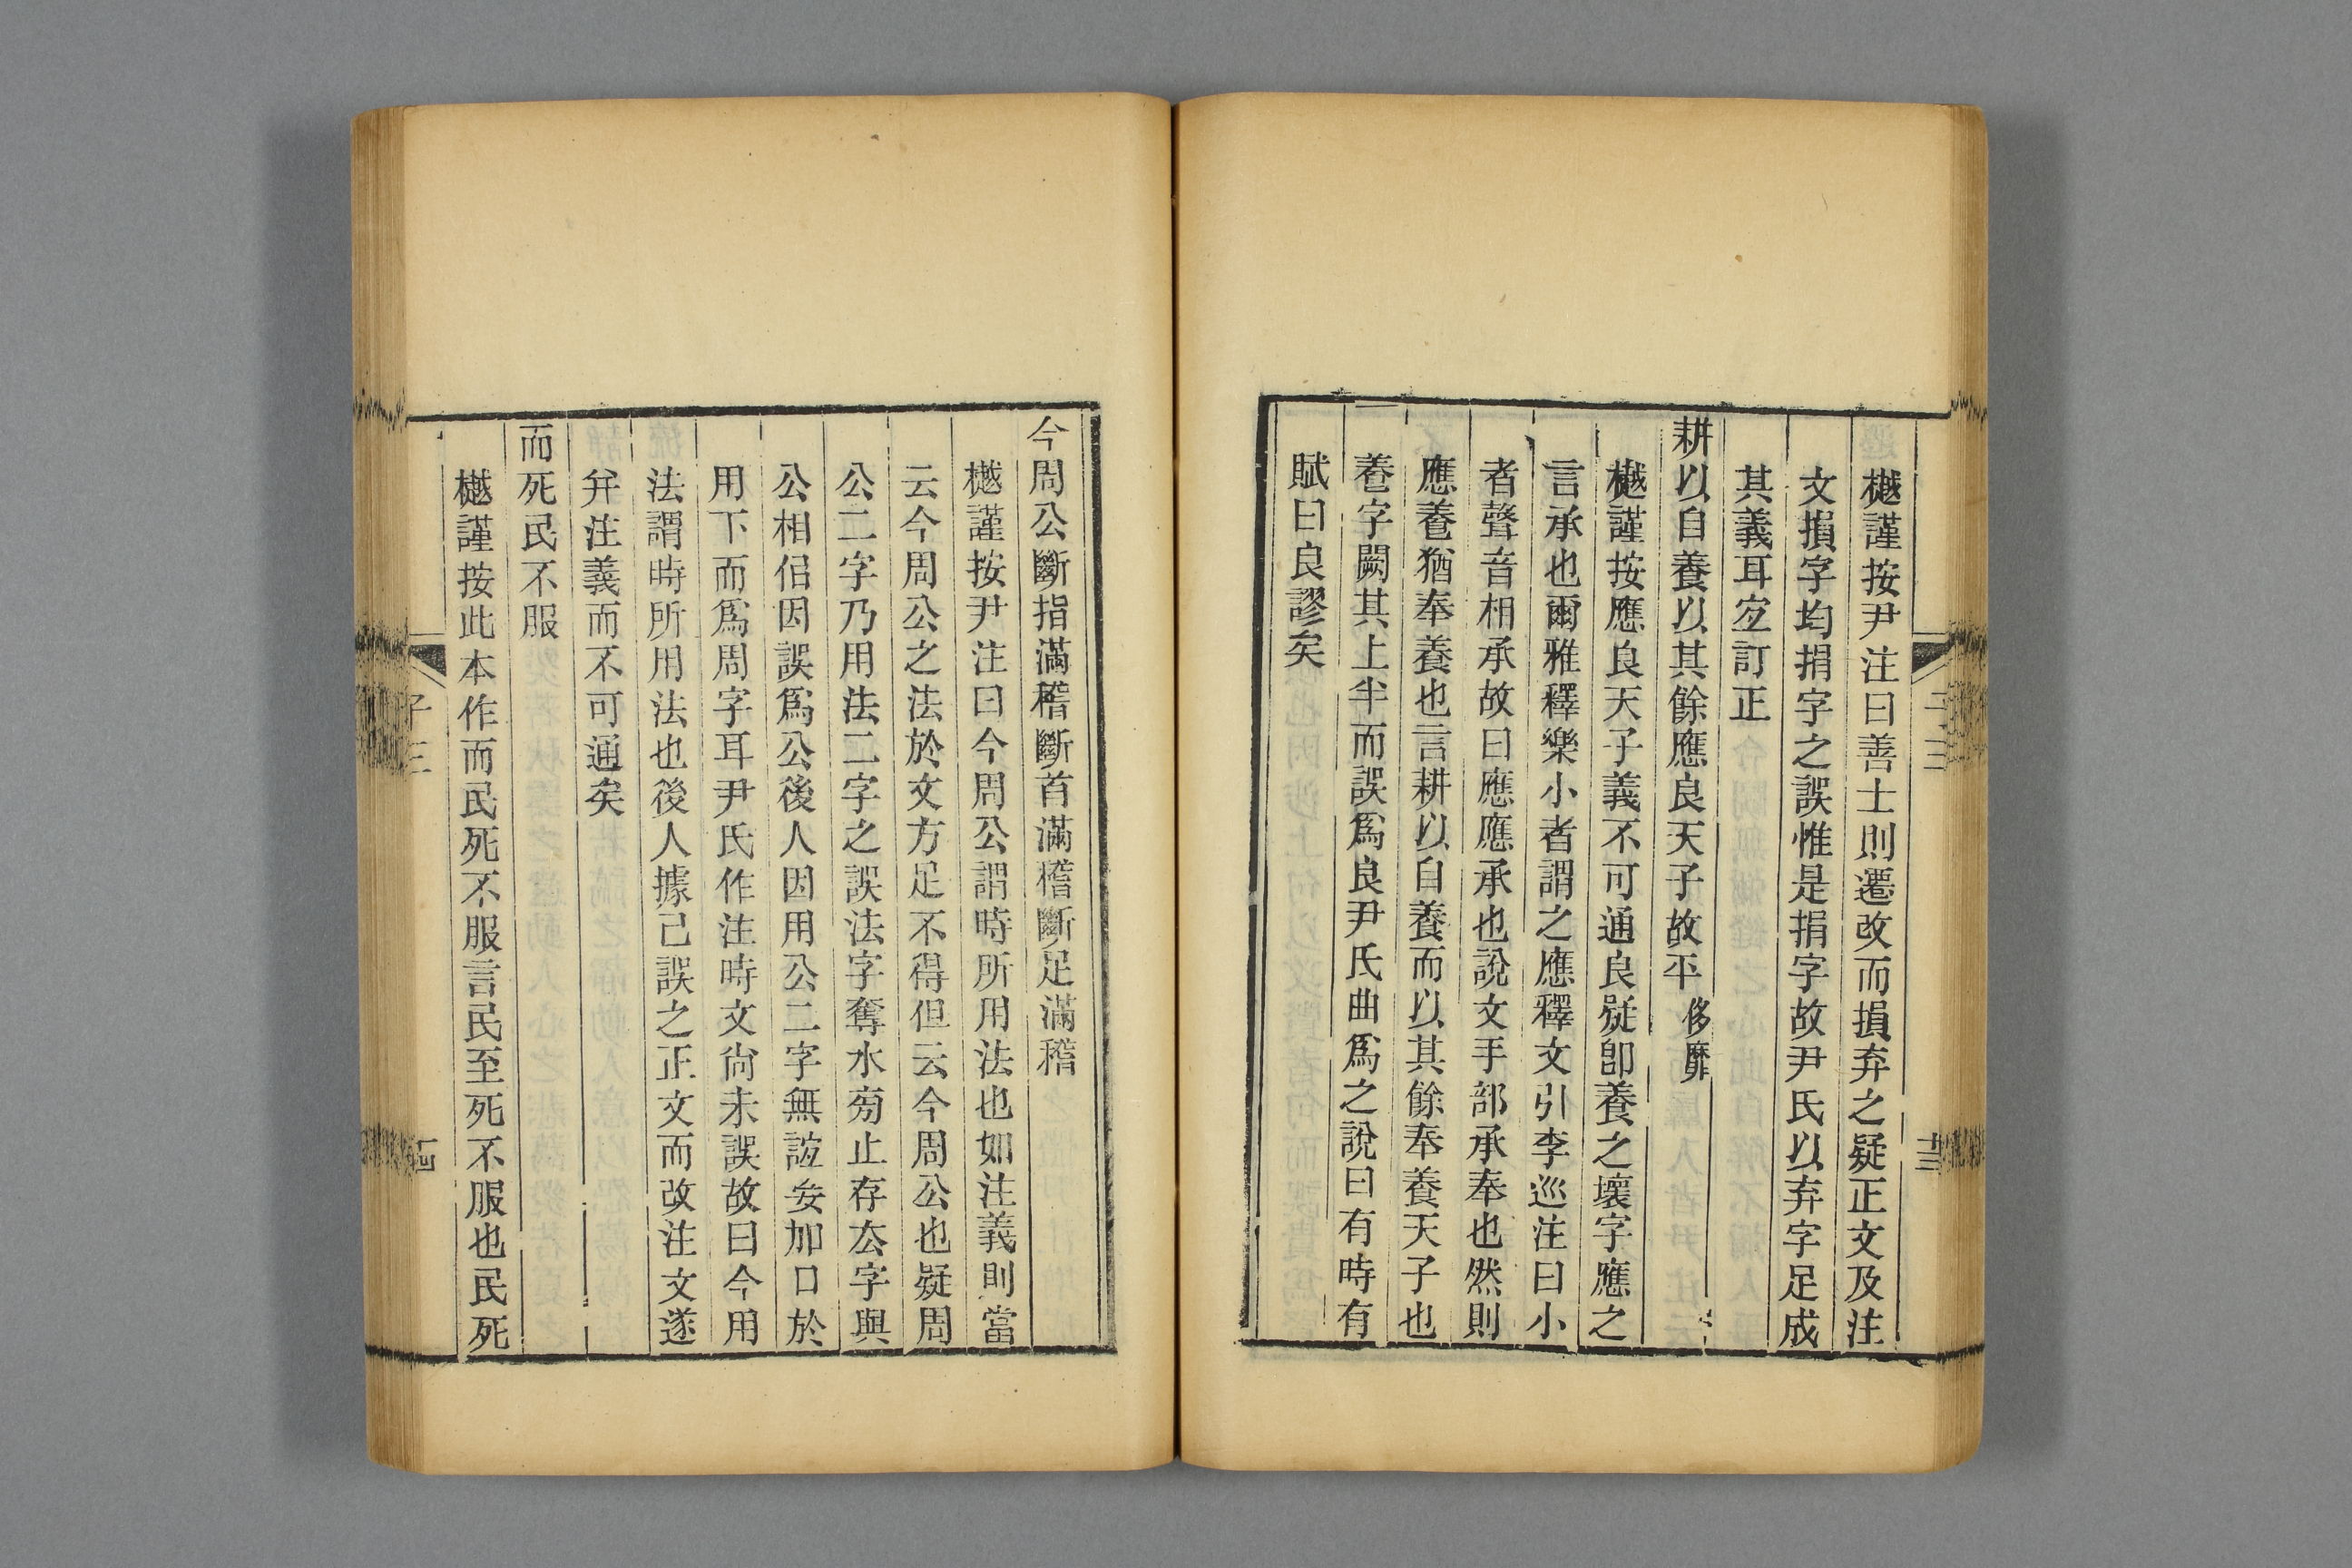 樾謹按尹注曰善士則遷改而損弃之疑正文及注
文損字均捐字之誤惟是捐字故尹氏以弃字足成
其義耳㝎訂正
耕以自養以其餘應良天子故平 侈靡
樾謹按應良天子義不可通良疑卽養之壞字應之
言承也爾雅釋樂小者謂之應釋文引李巡注曰小
者聲音相承故曰應應承也說文手部承奉也然則
應養猶奉養也言耕以自養而以其餘奉養天子也
養字闕其上半而誤爲良尹氏曲爲之說曰有時有
賦曰良謬矣
子三
十三
今周公斷指滿稽斷首滿稽斷足滿稽
樾謹按尹注曰今周公謂時所用法也如注義則當
云今周公之法於文方足不得但云今周公也疑周
公二字乃用法二字之誤法字奪水旁止存厺字與
公相侣因誤爲公後人因用公二字無誼妄加口於
用下而爲周字耳尹氏作注時文尙未誤故曰今用
法謂時所用法也後人據已誤之正文而改注文遂
幷注義而不可通矣
而死民不服
樾謹按此本作而民死不服言民至死不服也民死
子三
十四